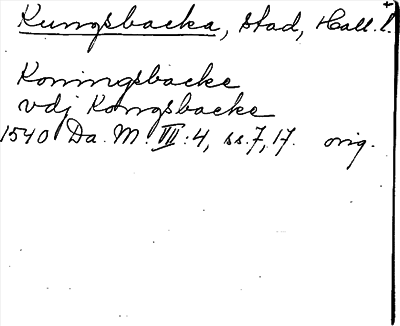 Kungsbacka, stad, Hall. l. +
Koningsbacke
vdj Kongsbacke
1540 Da. M. III:4, ss. 7, 17. orig.